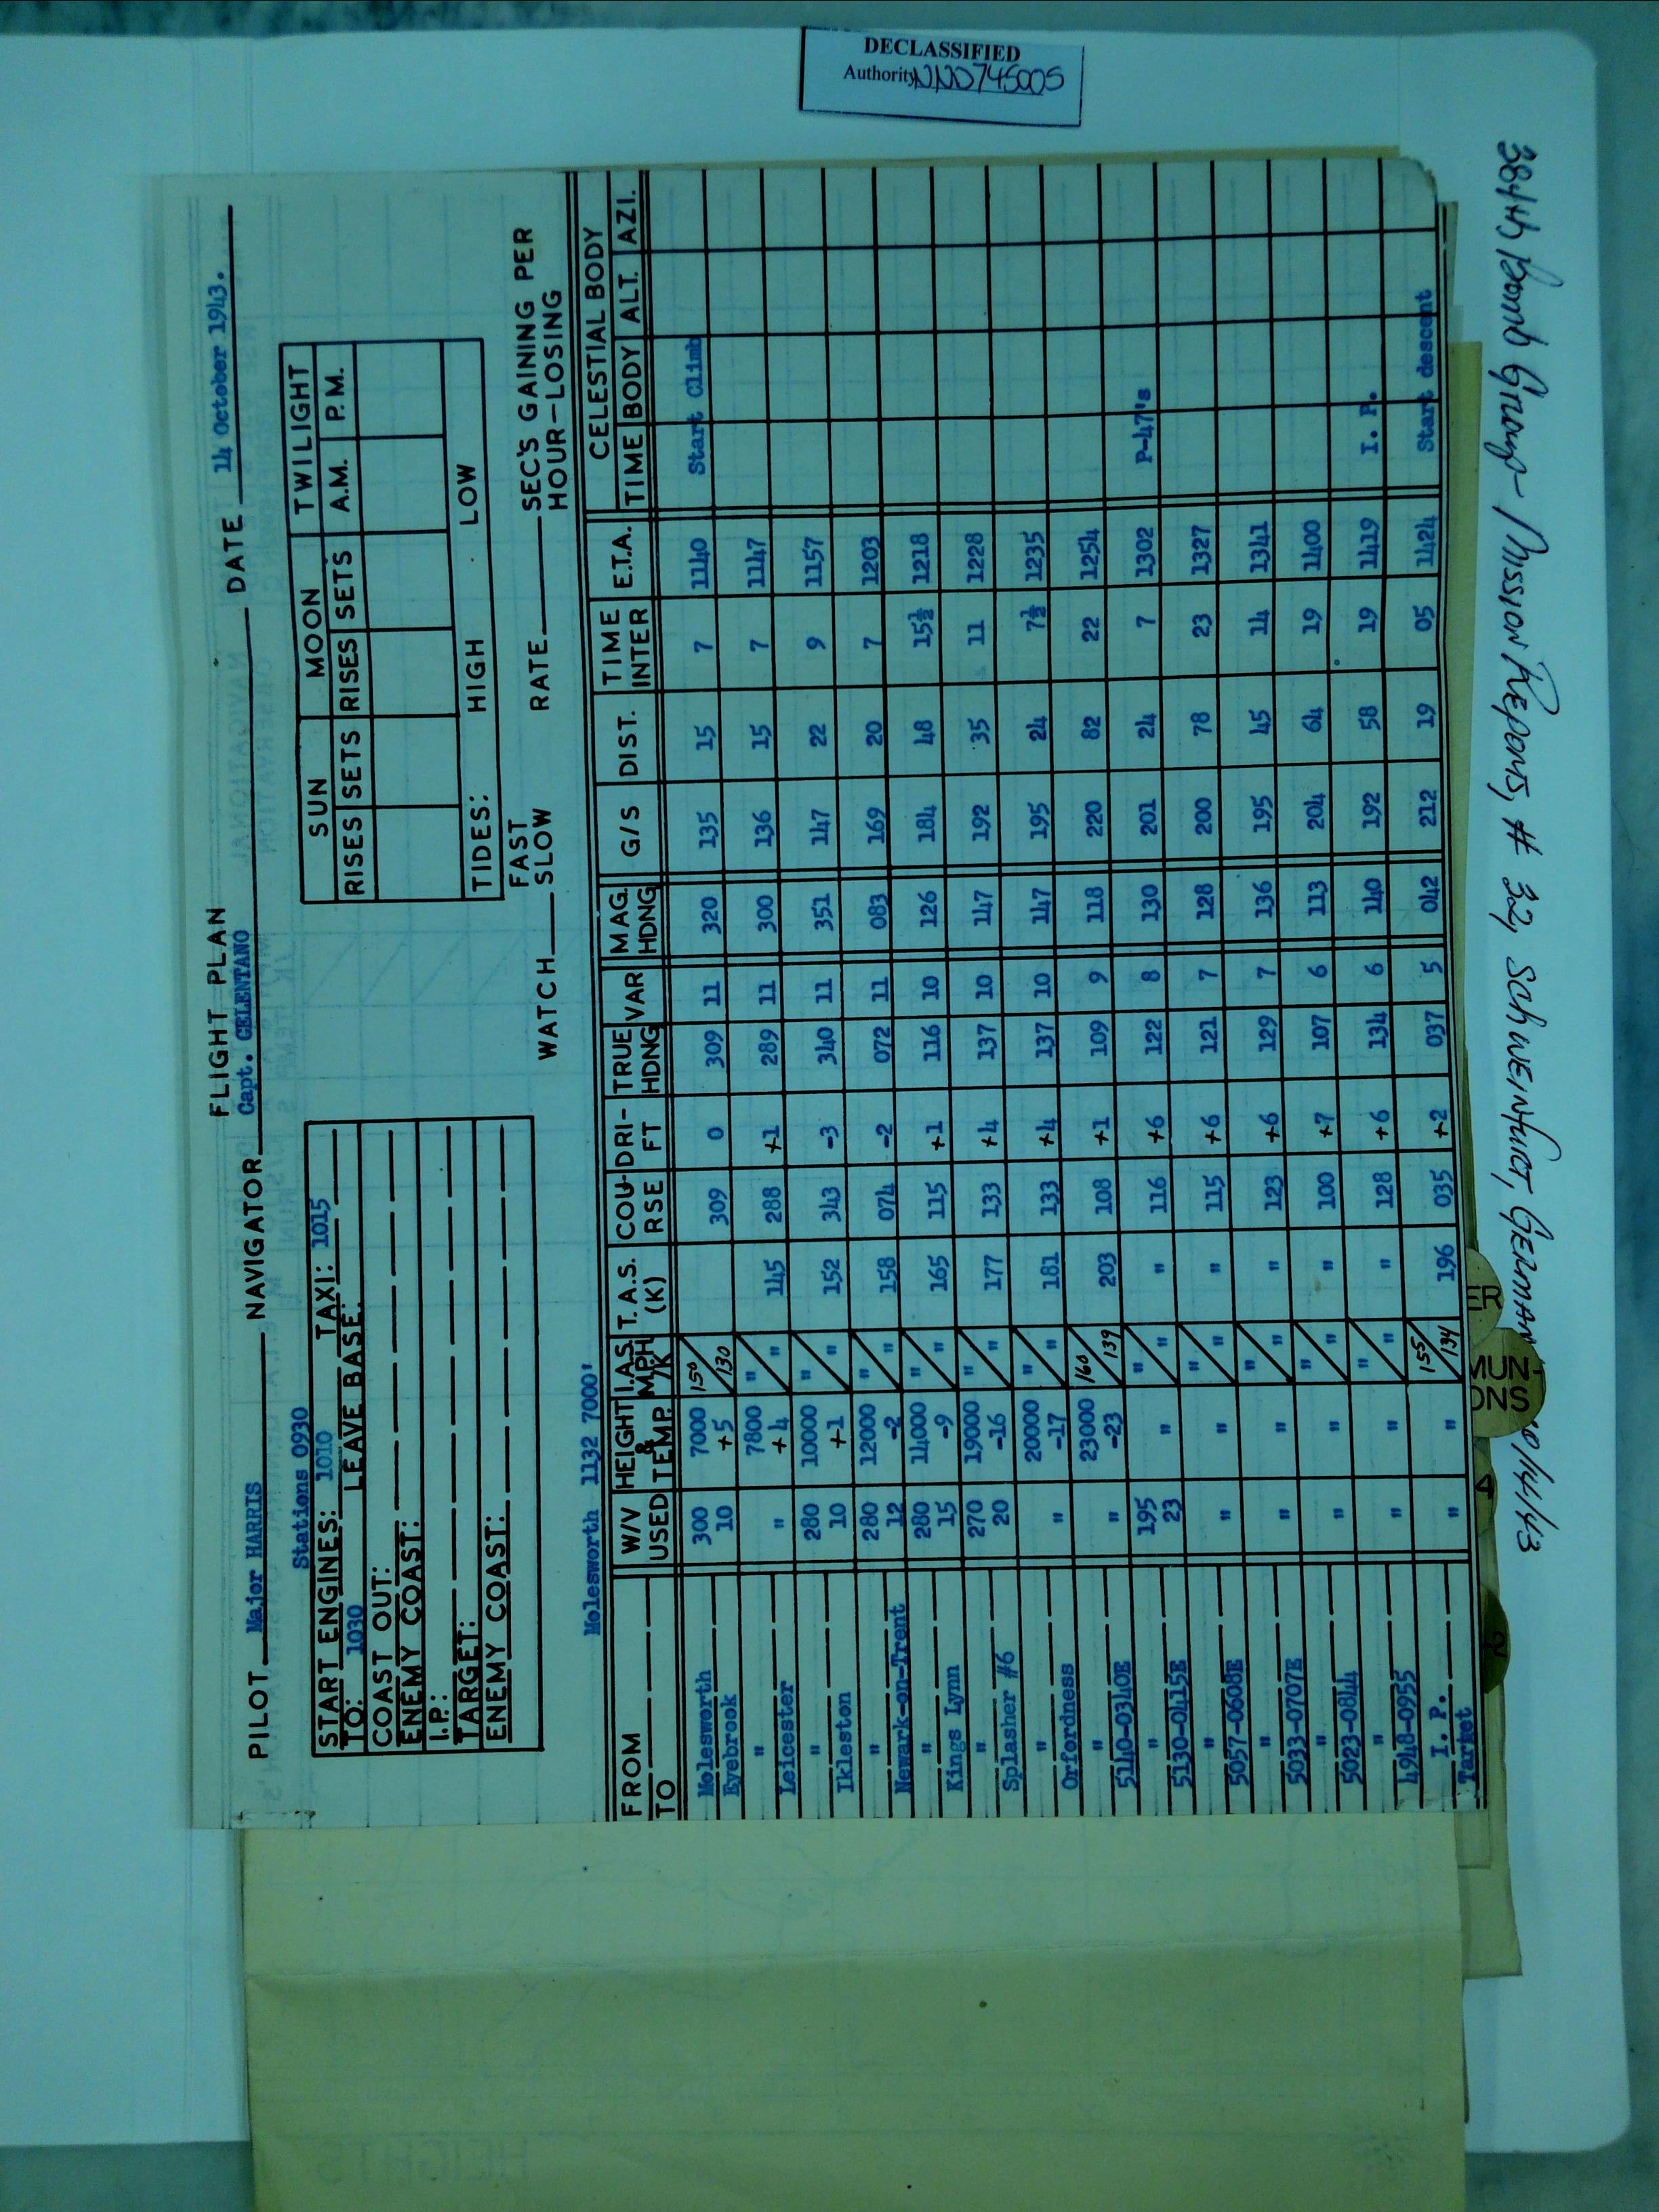 DECLASSIFIED
Authority NND745005
FLIGHT PLAN
PILOT Major HARRIS NAVIGATOR Capt. CELENTANO DATE 14 October 1943.
Stations 0930
START ENGINES: 1010 TAXI: 1015
TO: 1030 LEAVE BASE:
COAST OUT:
ENEMY COAST:
I.P.:
TARGET:
ENEMY COAST:
SUN MOON TWILIGHT
RISES SETS RISES SETS A.M. P.M.
TIDES: HIGH LOW
WATCH FAST SLOW RATE SEC'S GAINING PER HOUR-LOSING
Molesworth 1132 7000'
FROM TO W/V USED HEIGHT & TEMP. I.A.S. MPH/K T.A.S. (K) COU-RSE DRI-FT TRUE HDNG VAR MAG. HDNG G/S DIST. TIME INTER E.T.A. CELESTIAL BODY TIME BODY ALT. AZI.
Molesworth Eyebrook 300 10 7000 +5 150 130 309 0 309 11 320 135 15 7 1140 Start Climb
" Leicester " 7800 +4 " " 145 288 +1 289 11 300 136 15 7 1147
" Ikleston 280 10 10000 +1 " " 152 343 -3 340 11 351 147 22 9 1157
" Newark-on-Trent 280 12 12000 -2 " " 158 074 -2 072 11 083 169 20 7 1203
" Kings Lynn 280 15 14000 -9 " " 165 115 +1 116 10 126 184 48 15½ 1218
" Splasher #6 270 20 19000 -16 " " 177 133 +4 137 10 147 192 35 11 1228
" Orfordness " 20000 -17 " " 181 133 +4 137 10 147 195 24 7½ 1235
" 5140-0340E " 23000 -23 160 139 203 108 +1 109 9 118 220 82 22 1254
" 5130-0415E 195 23 " " " " 116 +6 122 8 130 201 24 7 1302 P-47's
" 5057-0608E " " " " " 115 +6 121 7 128 200 78 23 1327
" 5033-0707E " " " " " 123 +6 129 7 136 195 45 14 1341
" 5023-0844 " " " " " 100 +7 107 6 113 204 64 19 1400
" 4948-0955 " " " " " 128 +6 134 6 140 192 58 19 1419 I. P.
I. P. Target " " 155 134 196 035 +2 037 5 042 212 19 05 1424 Start descent
384th Bomb Group - Mission Reports, # 32, Schweinfurt, German 10/14/43
ER
MUN-
ONS